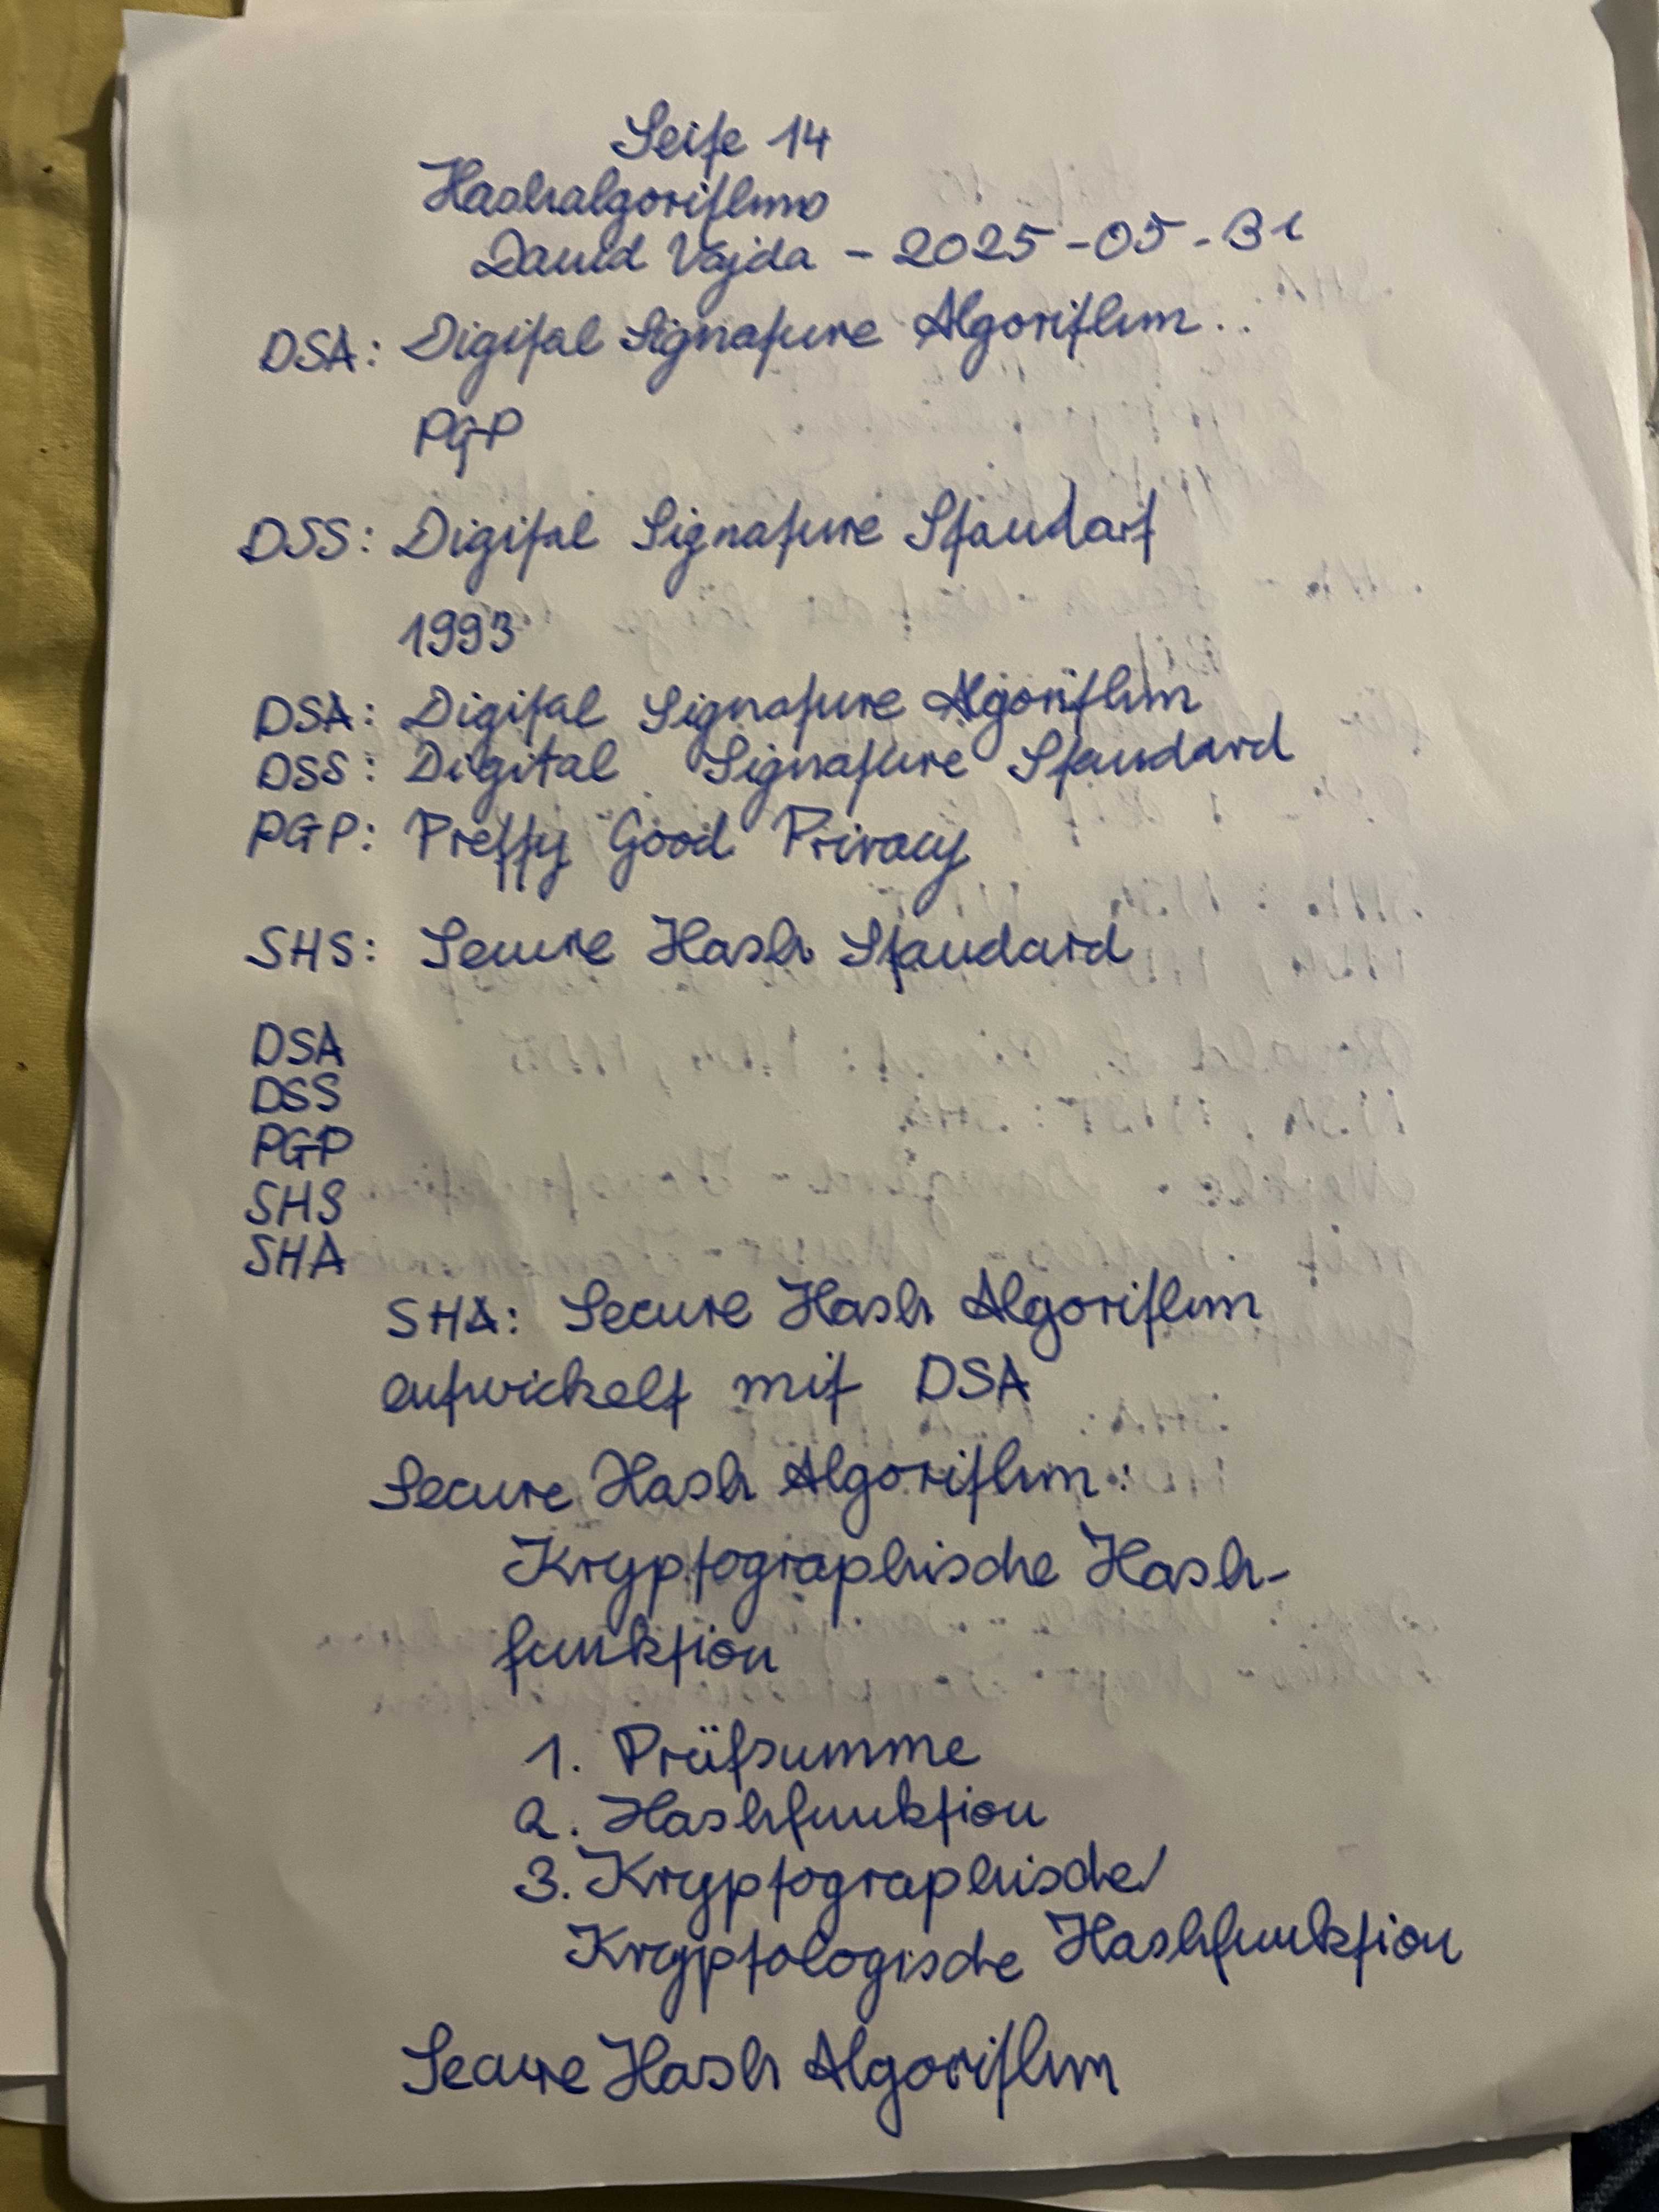 Seite 14
Hashalgorithmus
David Vajda - 2025-05-31
DSA: Digital Signature Algorithm..
PGP
DSS: Digital Signature Standart
1993
DSA: Digital Signature Algorithm
DSS: Digital Signature Standard
PGP: Pretty Good Privacy
SHS: Secure Hash Standard
DSA
DSS
PGP
SHS
SHA
SHA: Secure Hash Algorithm
entwickelt mit DSA
Secure Hash Algorithm:
Kryptographische Hash-
funktion
1. Prüfsumme
2. Hashfunktion
3. Kryptographische/
Kryptologische Hashfunktion
Secure Hash Algorithm